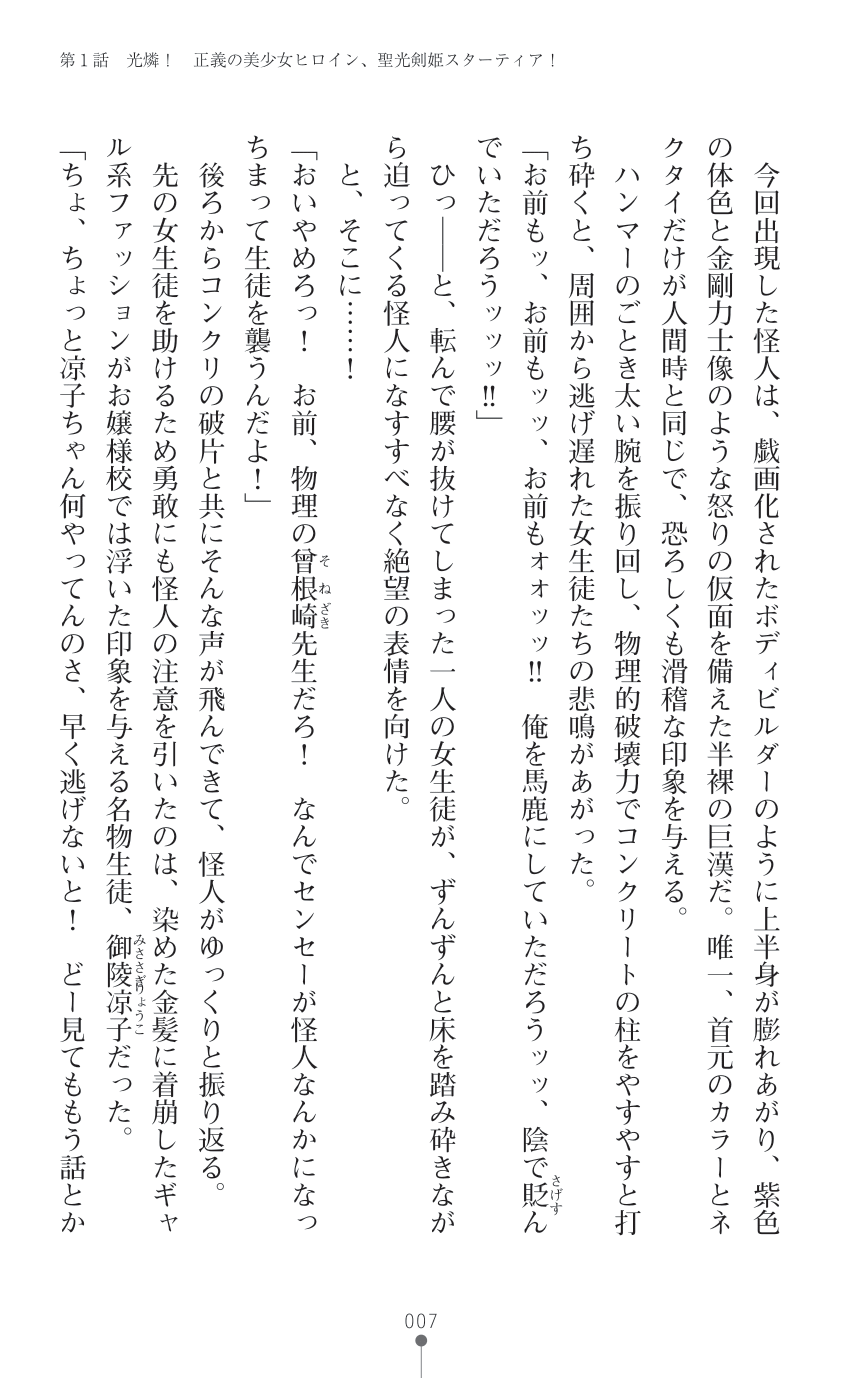 第１話　光燐！　正義の美少女ヒロイン、聖光剣姫スターティア！
　今回出現した怪人は、戯画化されたボディビルダーのように上半身が膨れあがり、紫色
の体色と金剛力士像のような怒りの仮面を備えた半裸の巨漢だ。唯一、首元のカラーとネ
クタイだけが人間時と同じで、恐ろしくも滑稽な印象を与える。
　ハンマーのごとき太い腕を振り回し、物理的破壊力でコンクリートの柱をやすやすと打
ち砕くと、周囲から逃げ遅れた女生徒たちの悲鳴があがった。
「お前もッ、お前もッッ、お前もォォッッ‼　俺を馬鹿にしていただろうッッ、陰で貶さげすん
でいただろうッッッ‼」
　ひっ――と、転んで腰が抜けてしまった一人の女生徒が、ずんずんと床を踏み砕きなが
ら迫ってくる怪人になすすべなく絶望の表情を向けた。
　と、そこに……！
「おいやめろっ！　お前、物理の曾根崎そねざき先生だろ！　なんでセンセーが怪人なんかになっ
ちまって生徒を襲うんだよ！」
　後ろからコンクリの破片と共にそんな声が飛んできて、怪人がゆっくりと振り返る。
　先の女生徒を助けるため勇敢にも怪人の注意を引いたのは、染めた金髪に着崩したギャ
ル系ファッションがお嬢様校では浮いた印象を与える名物生徒、御陵凉子みささぎりょうこだった。
「ちょ、ちょっと凉子ちゃん何やってんのさ、早く逃げないと！　どー見てももう話とか
007